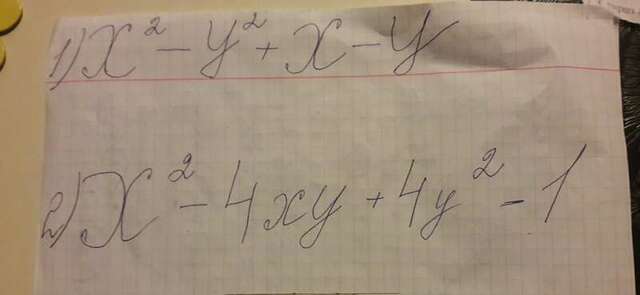 1) x² - y² + x - y
2) x² - 4xy + 4y² - 1